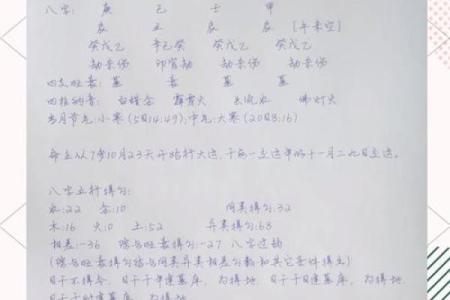 八字: 庚 己 壬 甲
辰 丑 辰 辰 [午未空]
癸戊乙 辛己癸 癸戊乙 癸戊乙
劫杀伤 印官劫 劫杀伤 劫杀伤
四支旺衰: 墓 衰 墓 墓
四柱纳音: 白蜡金 霹雳火 长流水 佛灯火
当月节气:小寒(5日14:49);中气:大寒(20日8:16)
命主从7岁10月23天开始行大运,于每一 年的十一月二九日交运。
八字五行得分:
水:22 金:10 同类得分:32
木:16 火:0 土:52 异类得分:68
相差:-36 综合旺衰得分:-27 八字过弱
(综合旺衰得分结合同类异类相差分数和其它条件得出)
日干不得令,日干于年逢墓库,为得地,日干于日逢墓库,为得地,
日干于时逢墓库,为得地